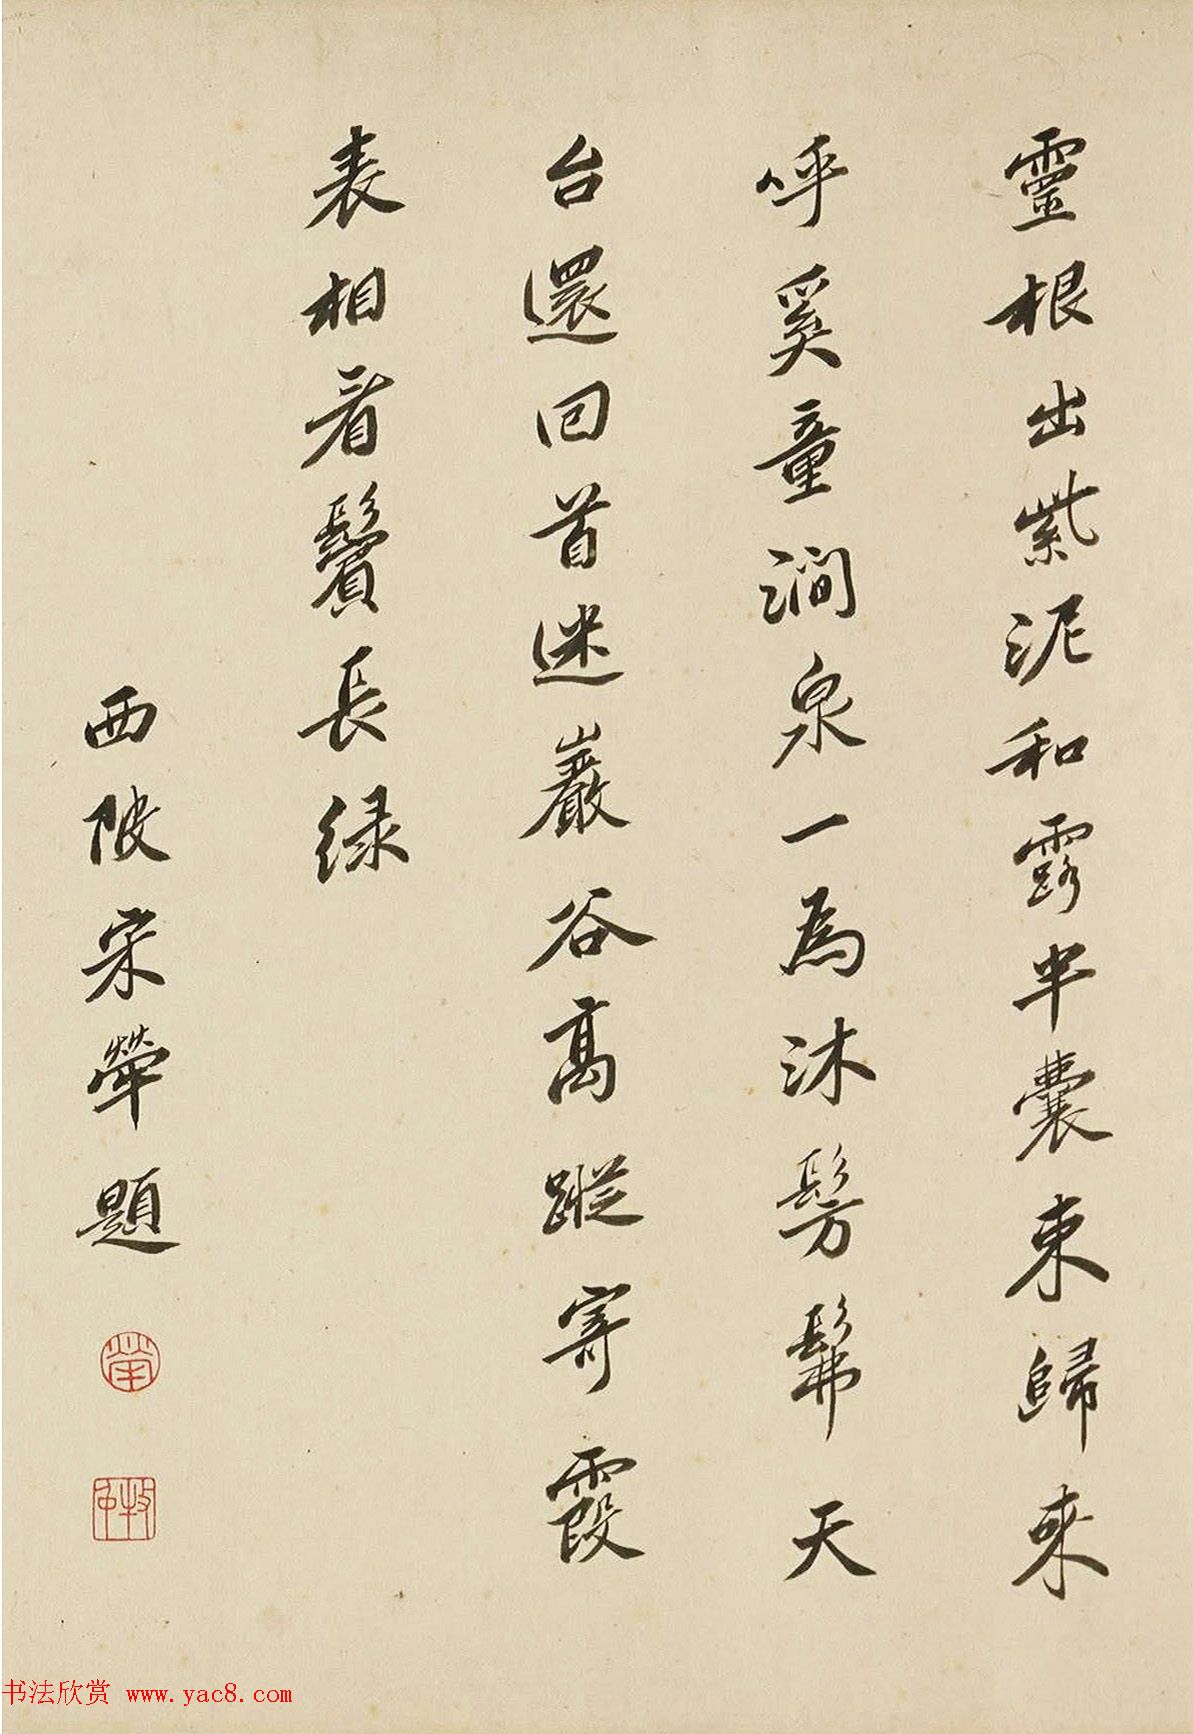 靈根出紫泥和露半囊束歸来
呼奚童澗泉一為沐髣髴天
台還回首迷巖谷高蹤寄霞
表相看鬢長緑
西陂宋犖題
犖
牧
书法欣赏 www.yac8.com